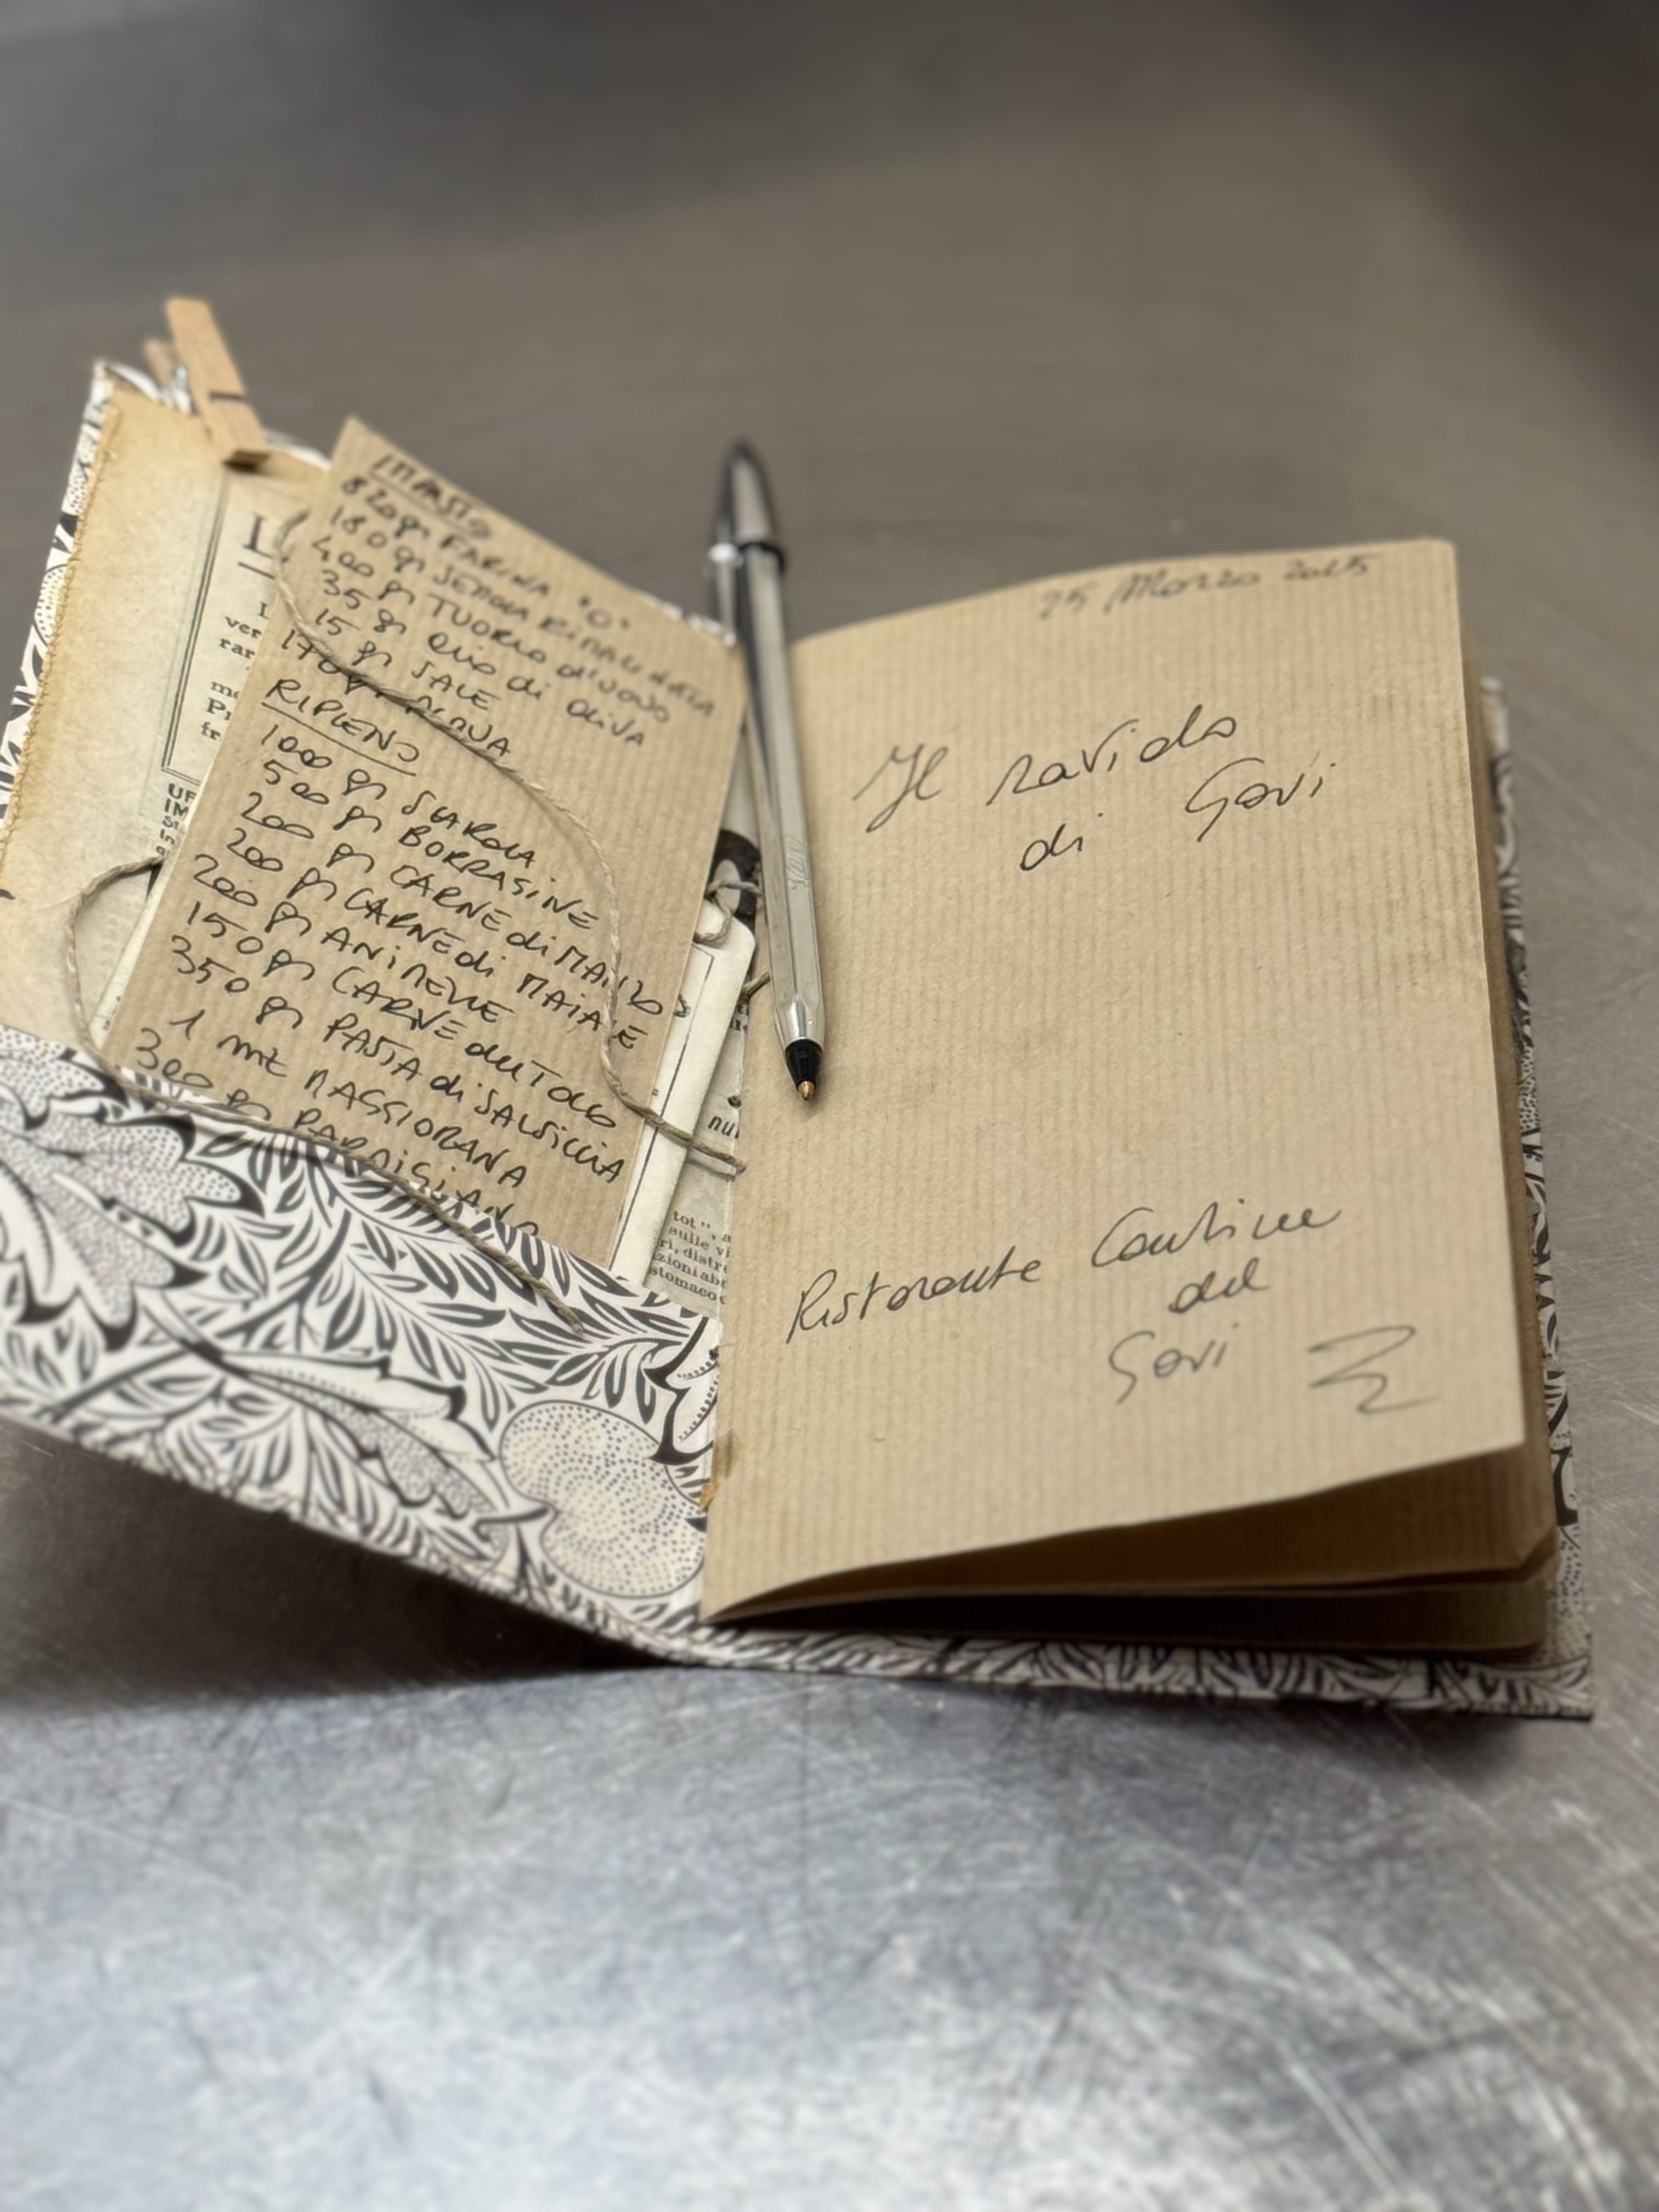 IMPASTO
820 gr FARINA "0"
180 gr SEMOLA RIMACINATA
400 gr TUORLO d'uovo
35 gr olio di oliva
15 gr SALE
170 gr ACQUA
RIPIENO
1000 gr SCAROLA
500 gr BORRAGINE
200 gr CARNE di MANZO
200 gr CARNE di MAIALE
200 gr ANIMELLE
150 gr CARNE
350 gr PASTA di SALSICCIA
1 mz MAGGIORANA
300 gr PARMIGIANO
L
ver
rar
fr
UF
nu
tot", a
sulle vi
ri, distr
zioni abd
stomaco
25 Marzo 2025
Il raviolo
di Gavi
Ristorante Cantine
del
Gavi